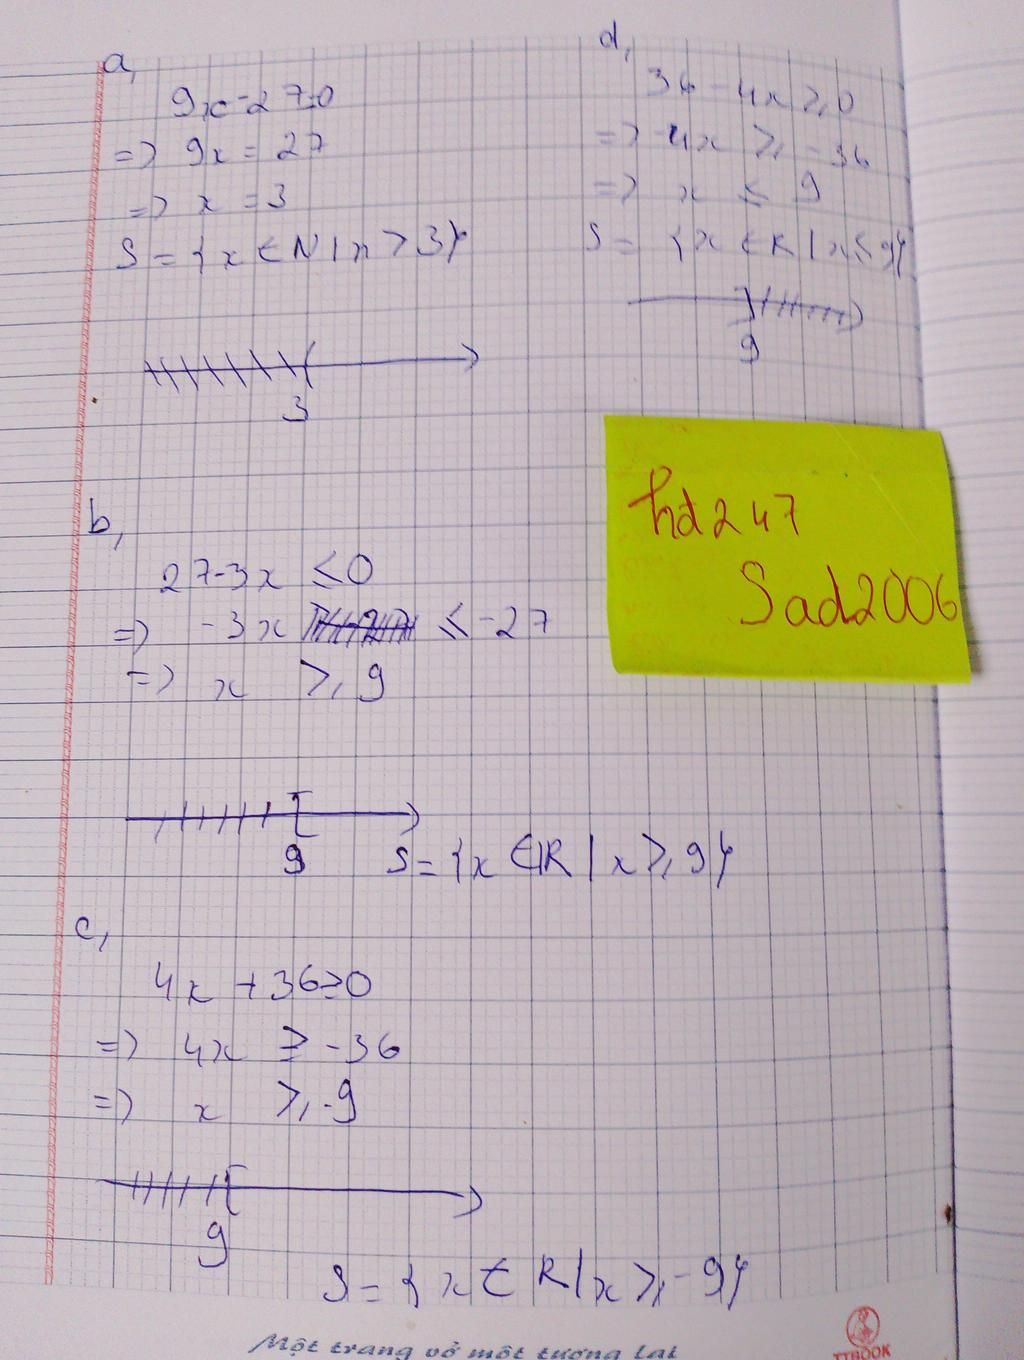 a,
9x-27>0
=> 9x = 27
=> x = 3
S = {x ∈ N | x > 3}
3
b,
27-3x ≤ 0
=> -3x ≤ -27
=> x ≥ 9
9
S = {x ∈ R | x ≥ 9}
c,
4x + 36 ≥ 0
=> 4x ≥ -36
=> x ≥ -9
9
S = {x ∈ R | x ≥ -9}
d,
36 - 4x ≥ 0
=> -4x ≥ -36
=> x ≤ 9
S = {x ∈ R | x ≤ 9}
9
hd247
Sad2006
Một trang vở một tương lai
TTBOOK